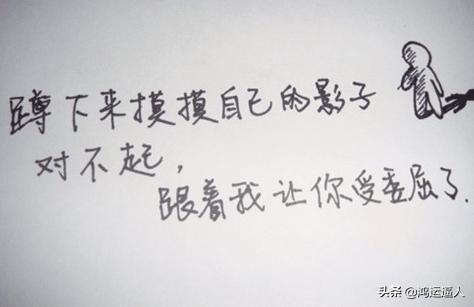 蹲下来摸摸自己的影子
对不起，
跟着我让你受委屈了.
头条 @鸿运逼人